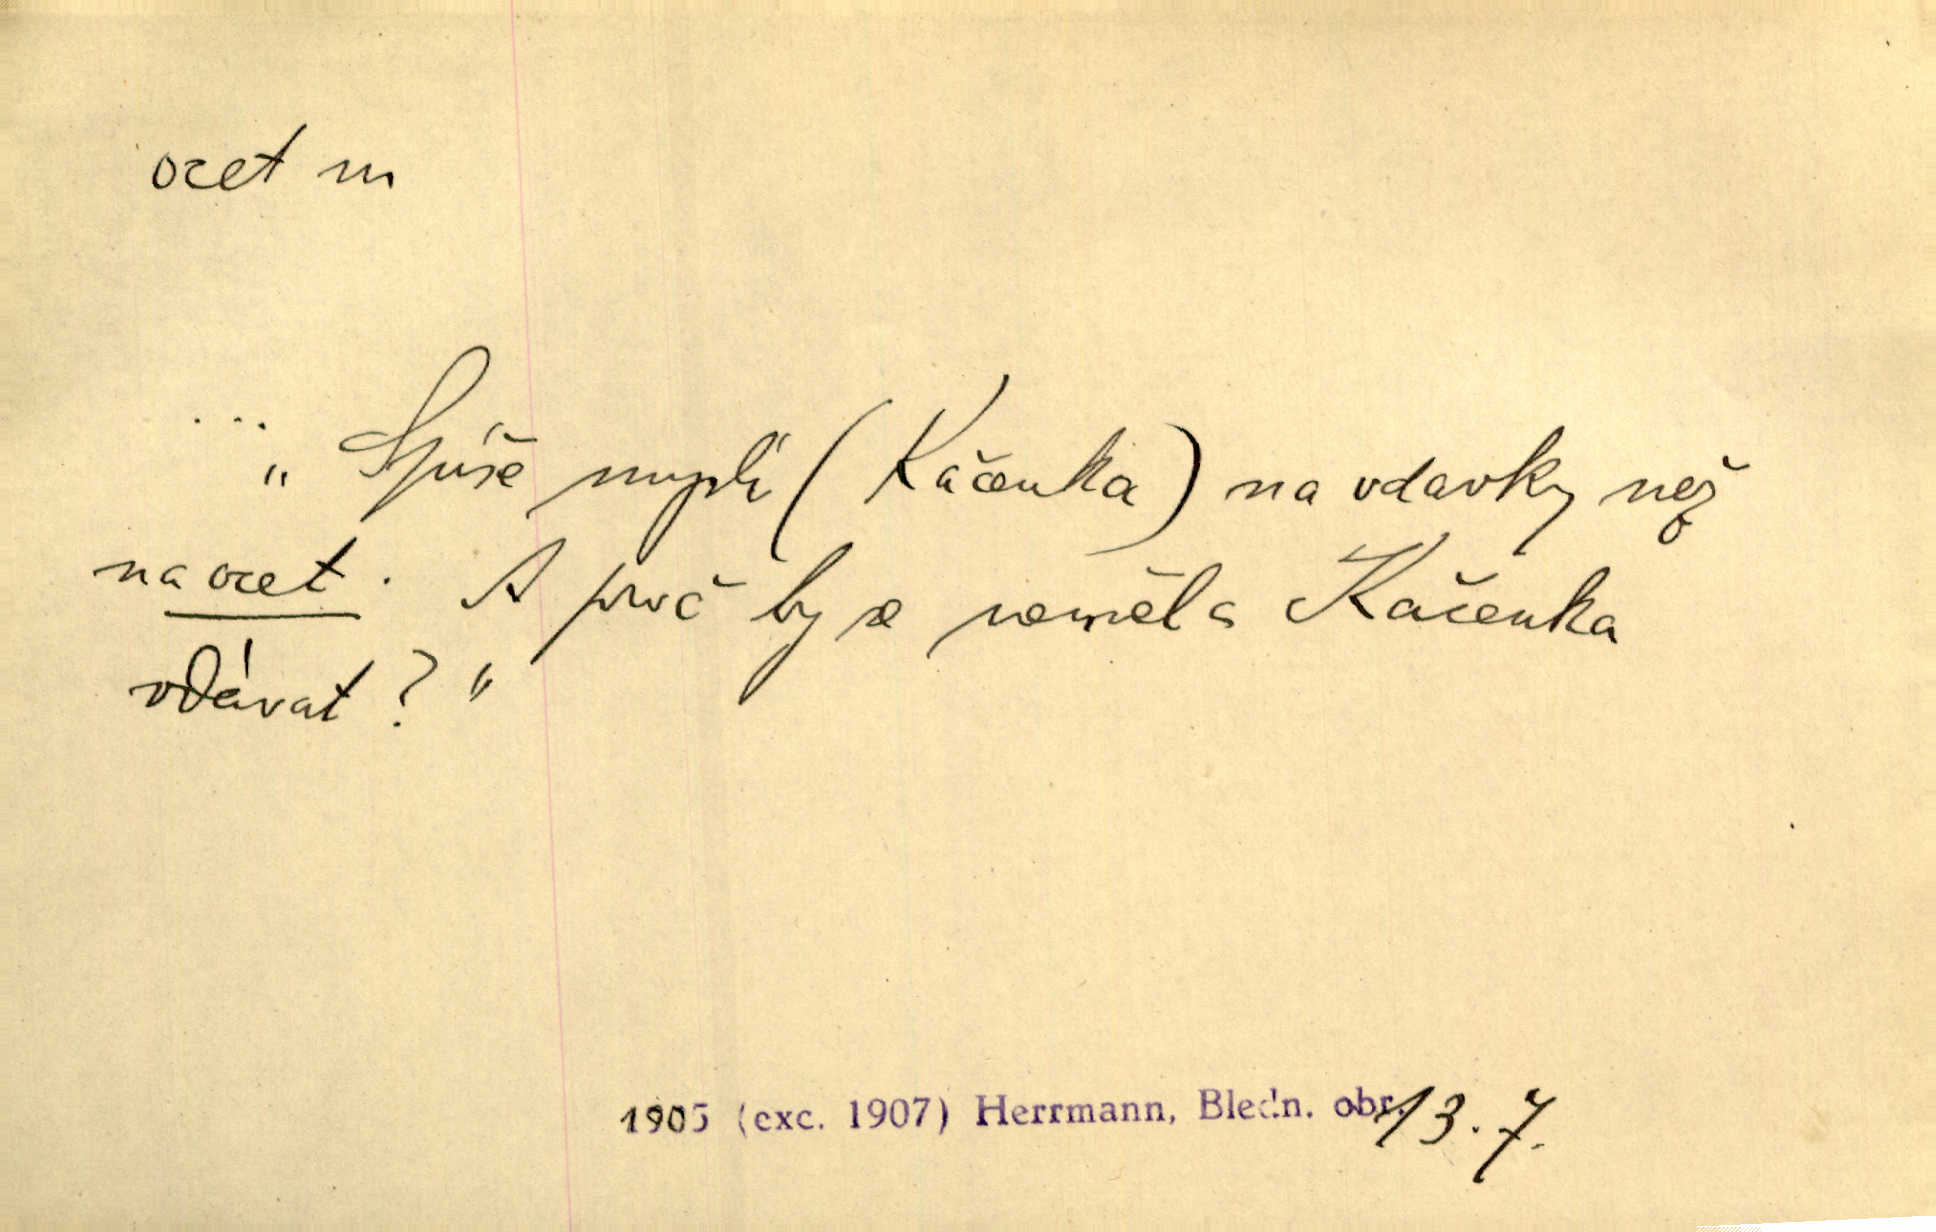 ocet m
...
„Spíše myslí (Káčenka) na vdavky než
na ocet. A proč by se neměla Káčenka
vdávat?"
1905 (exc. 1907) Herrmann, Bledn. obr. 13.7.